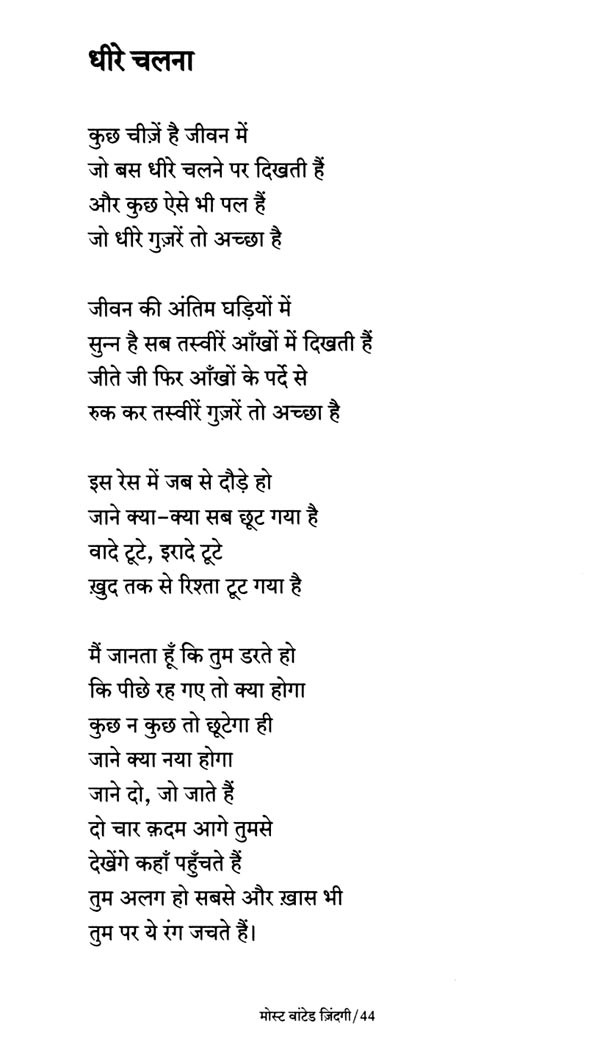 धीरे चलना
कुछ चीज़ें है जीवन में
जो बस धीरे चलने पर दिखती हैं
और कुछ ऐसे भी पल हैं
जो धीरे गुज़रें तो अच्छा है
जीवन की अंतिम घड़ियों में
सुन्न है सब तस्वीरें आँखों में दिखती हैं
जीते जी फिर आँखों के पर्दे से
रुक कर तस्वीरें गुज़रें तो अच्छा है
इस रेस में जब से दौड़े हो
जाने क्या-क्या सब छूट गया है
वादे टूटे, इरादे टूटे
ख़ुद तक से रिश्ता टूट गया है
मैं जानता हूँ कि तुम डरते हो
कि पीछे रह गए तो क्या होगा
कुछ न कुछ तो छूटेगा ही
जाने क्या नया होगा
जाने दो, जो जाते हैं
दो चार क़दम आगे तुमसे
देखेंगे कहाँ पहुँचते हैं
तुम अलग हो सबसे और ख़ास भी
तुम पर ये रंग जचते हैं।
मोस्ट वांटेड ज़िंदगी/44